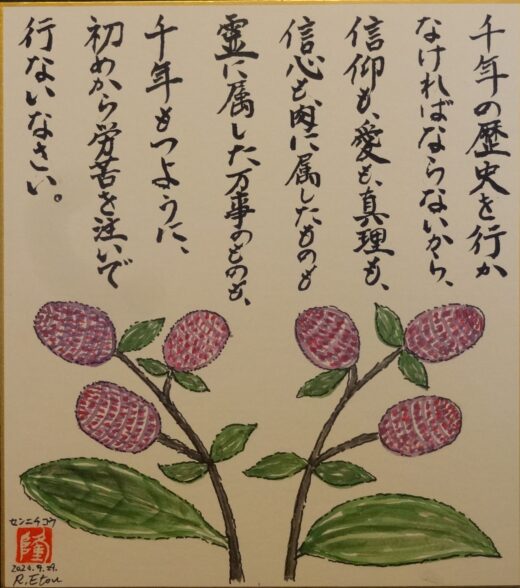 千年の歴史を行か
なければならないから、
信仰も、愛も、真理も、
信心も、肉に属したものも
霊に属した万事のものも、
千年もつように、
初めから労苦を注いで
行ないなさい。
センニチコウ
隆
2024.9.29.
R.Etou